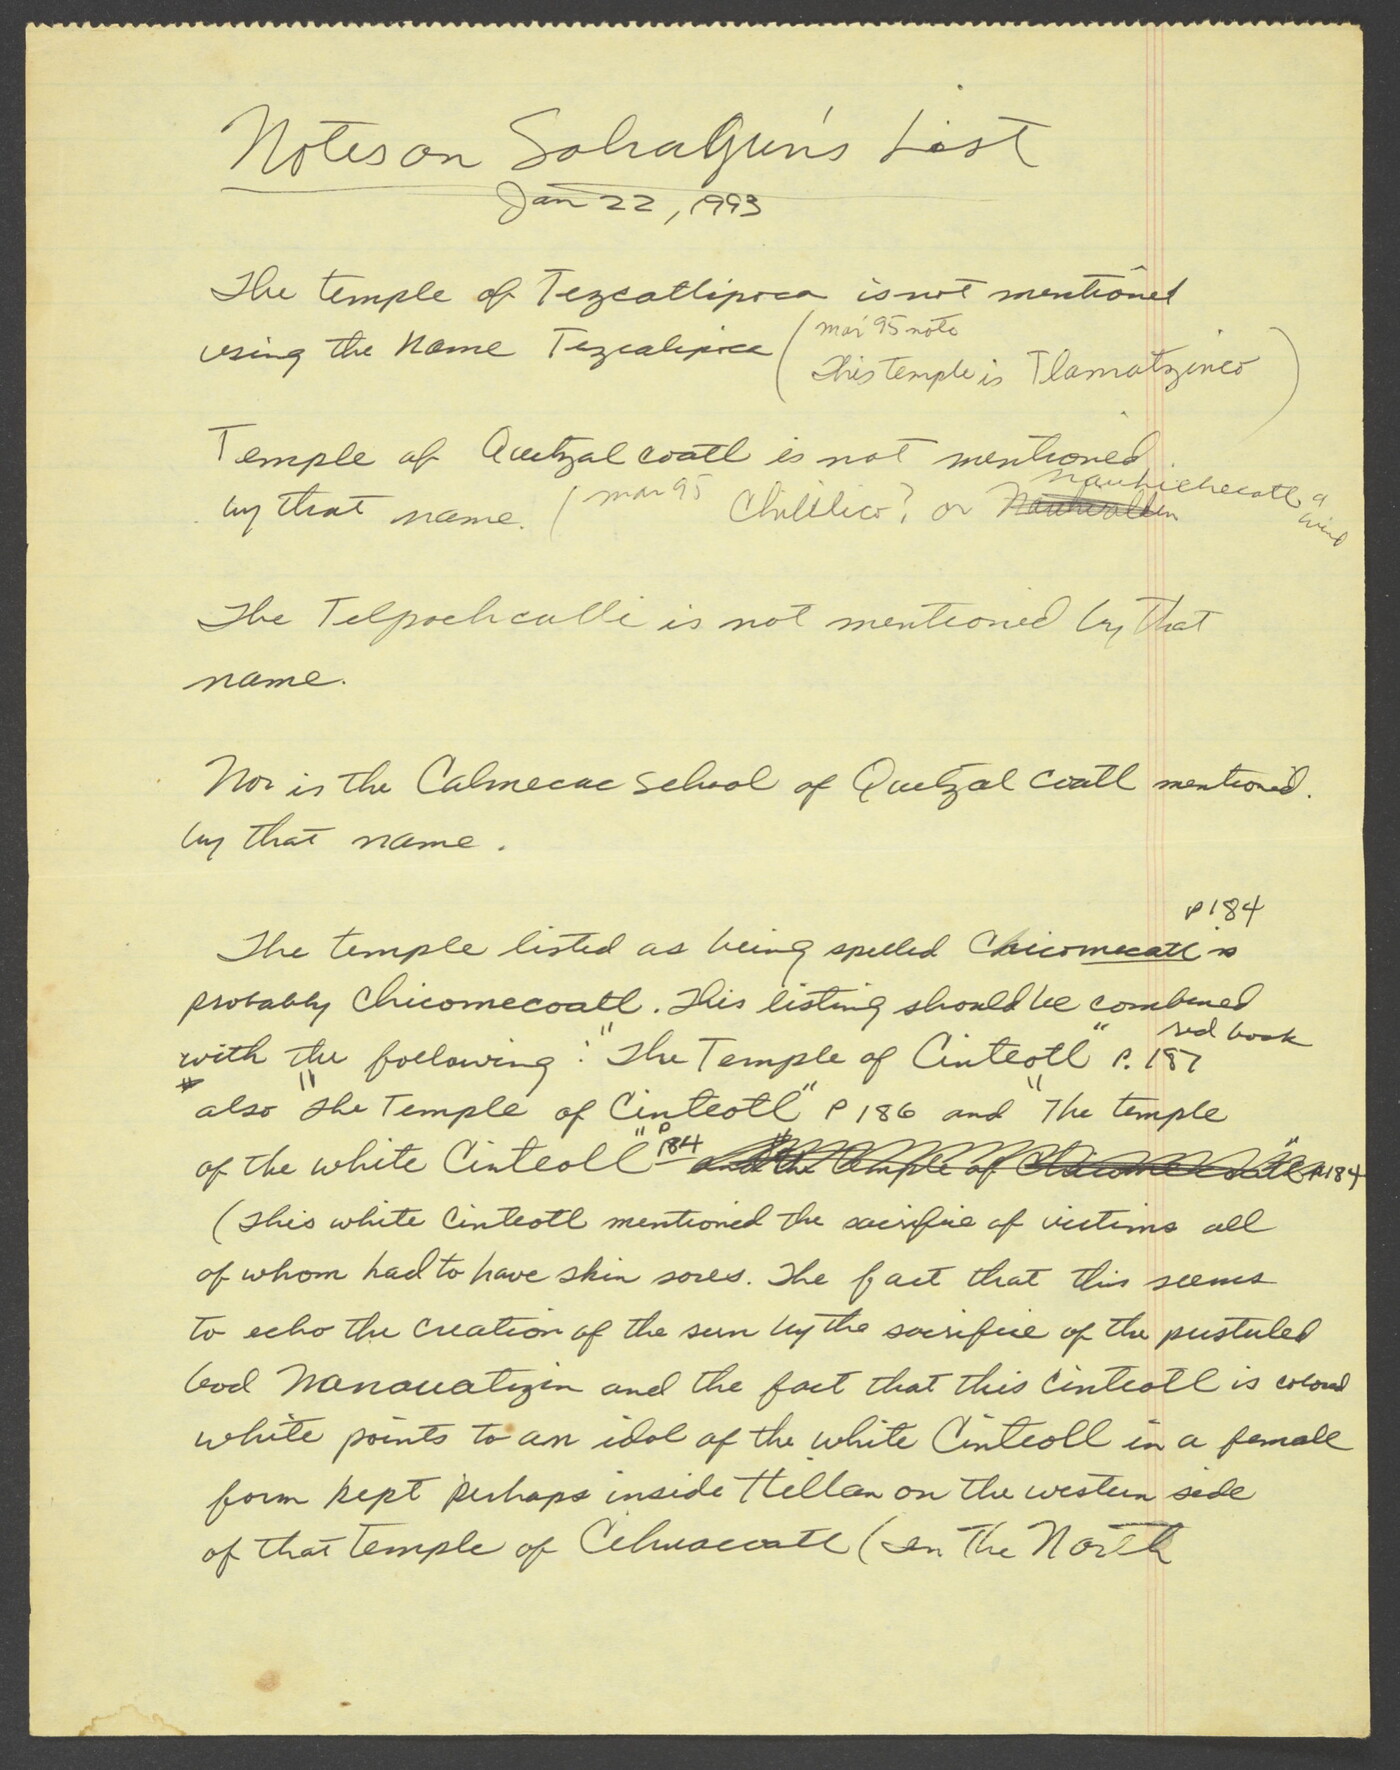 Notes on Sahagun's List
Jan 22, 1993
The temple of Tezcatlipoca is not mentioned
using the name Tezcalipoca (mar 95 note
This temple is Tlamatzinco)
Temple of Quetzal coatl is not mentioned
nauhiehecatl a
by that name. (mar 95 Chililico? or
wind
The Telpochcalli is not mentioned by that
name.
Nor is the Calmecac School of Quetzal Coatl mentioned.
by that name.
p 184
The temple listed as being spelled Chicomecatl is
probably Chicomecoatl. This listing should be combined
red book
with the following: "The Temple of Cinteotl" p. 187
also "The Temple of Cinteotl" P 186 and "The temple
of the white Cinteotl" p 184 and the temple of Chicomecoatl" p184
(This white Cinteotl mentioned the sacrifice of victims all
of whom had to have skin sores. The fact that this seems
to echo the creation of the sun by the sacrifice of the pustuled
God Nanauatizin and the fact that this Cinteotl is colored
white points to an idol of the white Cinteotl in a female
form kept perhaps inside Tlillan on the western side
of that temple of Cihuacoatl (in The North